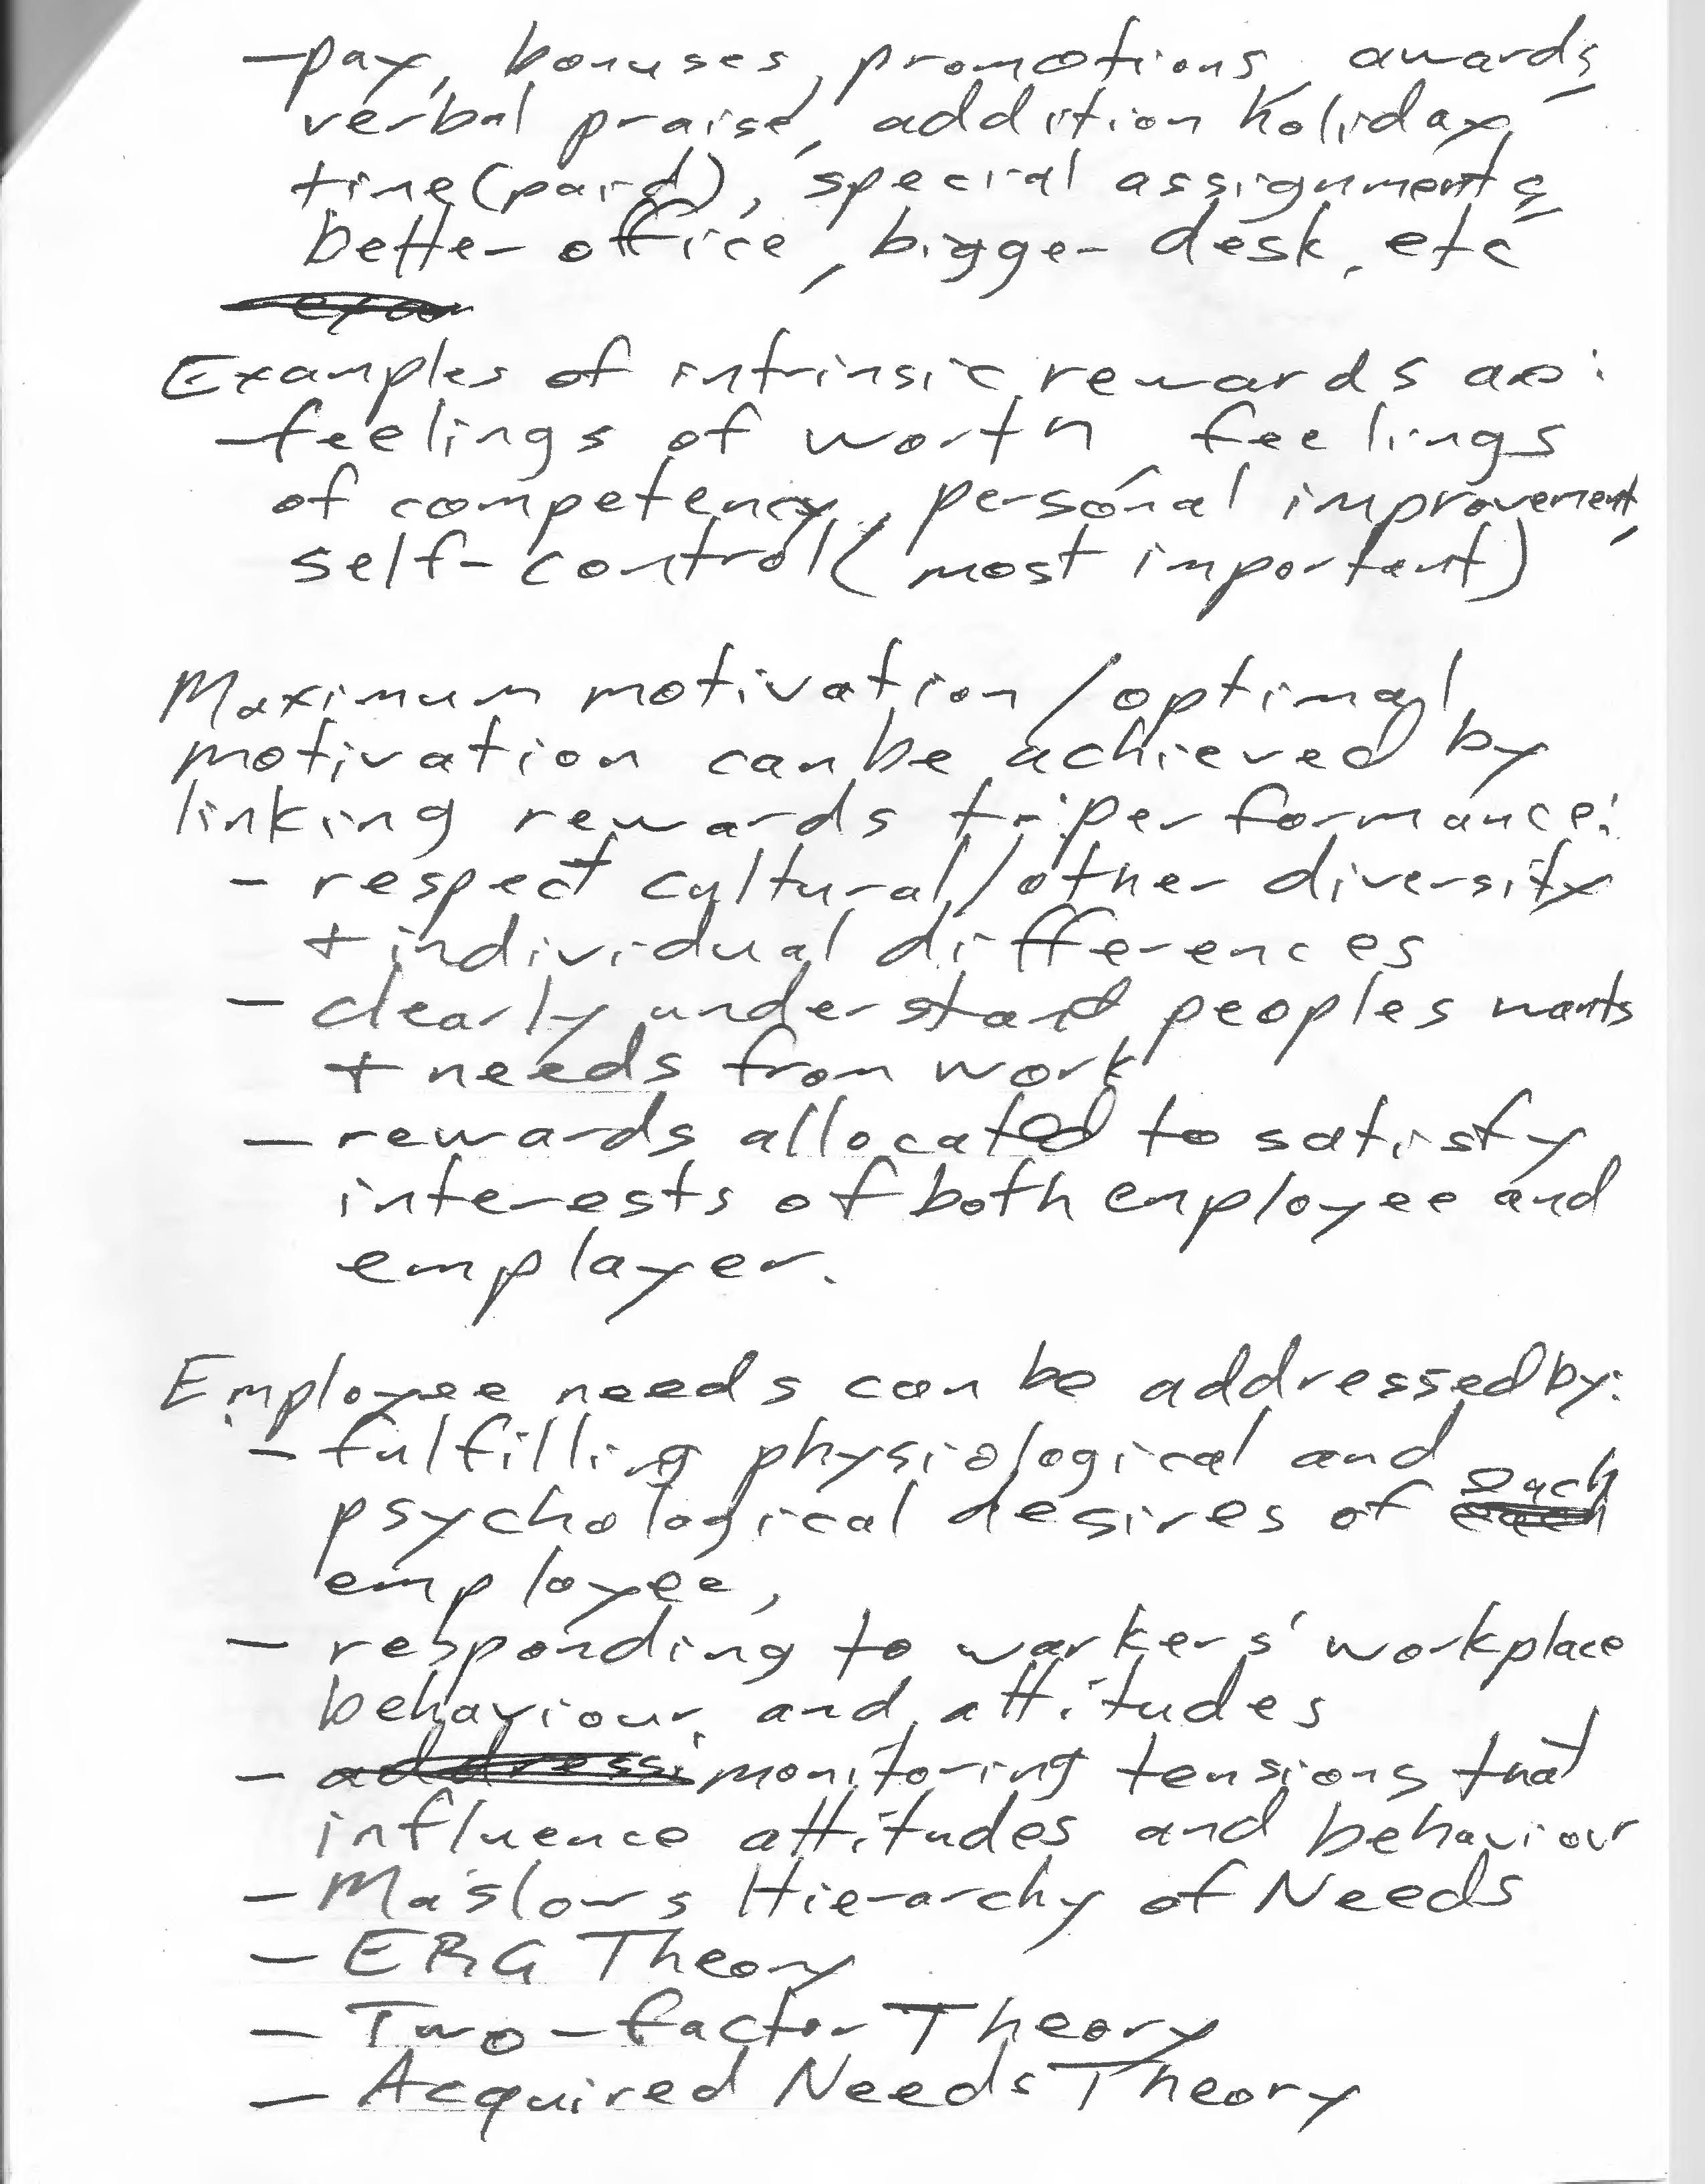 - pay, bonuses, promotions, awards,
verbal praise, addition holiday
time (paid), special assignments,
better office, bigger desk, etc
Examples of intrinsic rewards are:
- feelings of worth, feelings
of competency, personal improvement,
self-control (most important)
Maximum motivation / optimal
motivation can be achieved by
linking rewards to performance:
- respect cultural/other diversity
+ individual differences
- clearly understand peoples wants
+ needs from work
- rewards allocated to satisfy
interests of both employee and
employer.
Employee needs can be addressed by:
- fulfilling physiological and
psychological desires of each
employee,
- responding to workers' workplace
behaviour and attitudes
- monitoring tensions that
influence attitudes and behaviour
- Maslows Hierarchy of Needs
- ERG Theory
- Two-factor Theory
- Acquired Needs Theory